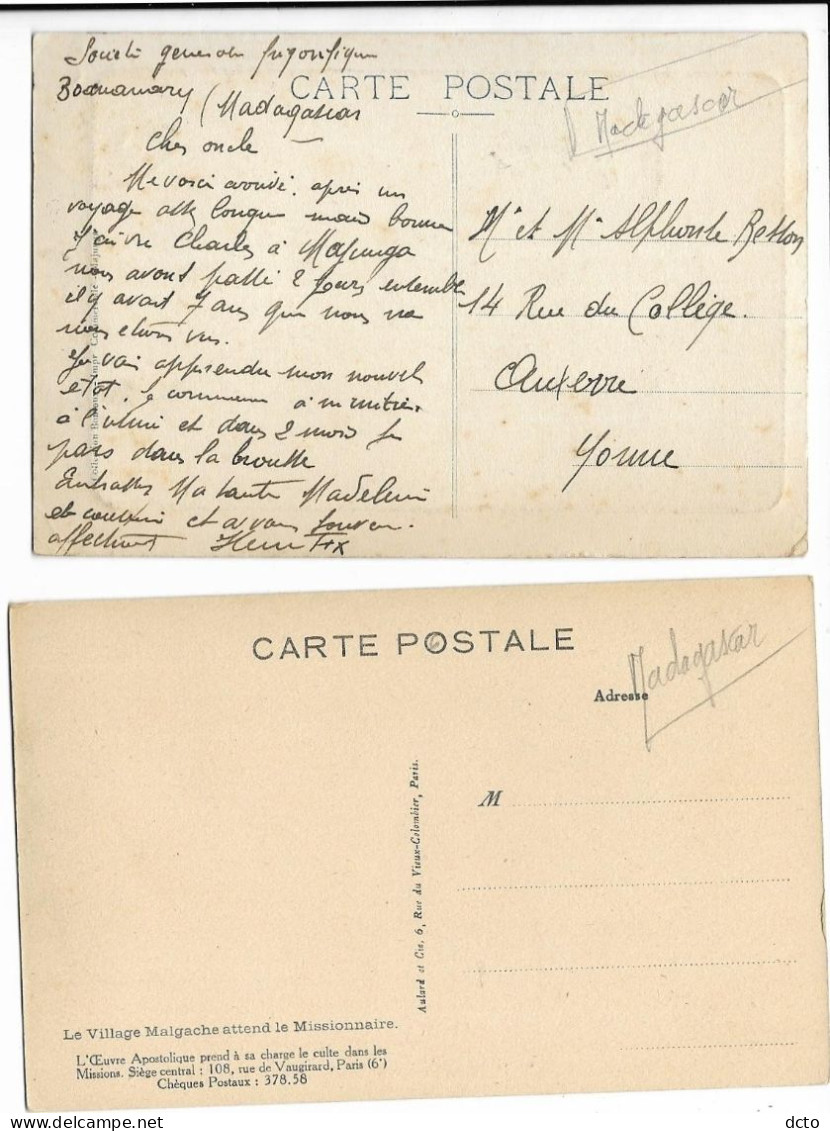 Société generale frigorifique
Boanamary (Madagascar
CARTE POSTALE
Madagascar
Cher oncle
Me voici arrivé. après un
voyage longue mais bonne
Charles à Majunga
nous avont passé 2 jours ensemble
il y avait 7 ans que nous ne
nous etions vus.
Je vais apprendre mon nouvel
etat. je commence
à l'usine et dans 2 mois je
pars dans la brousse
Embrasser Ma tante Madeleine
et cousine et
Henri
Mr et Me Alphonse
14 Rue du Collège.
Auxerre
Yonne
CARTE POSTALE
Madagascar
Adresse
M
Aulard et Cie, 6, Rue du Vieux-Colombier, Paris.
Le Village Malgache attend le Missionnaire.
L'Œuvre Apostolique prend à sa charge le culte dans les
Missions. Siège central : 108, rue de Vaugirard, Paris (6e)
Chèques Postaux : 378.58
dcto